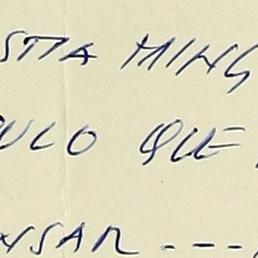 STIA MING
ULO QUE
NSAR ---